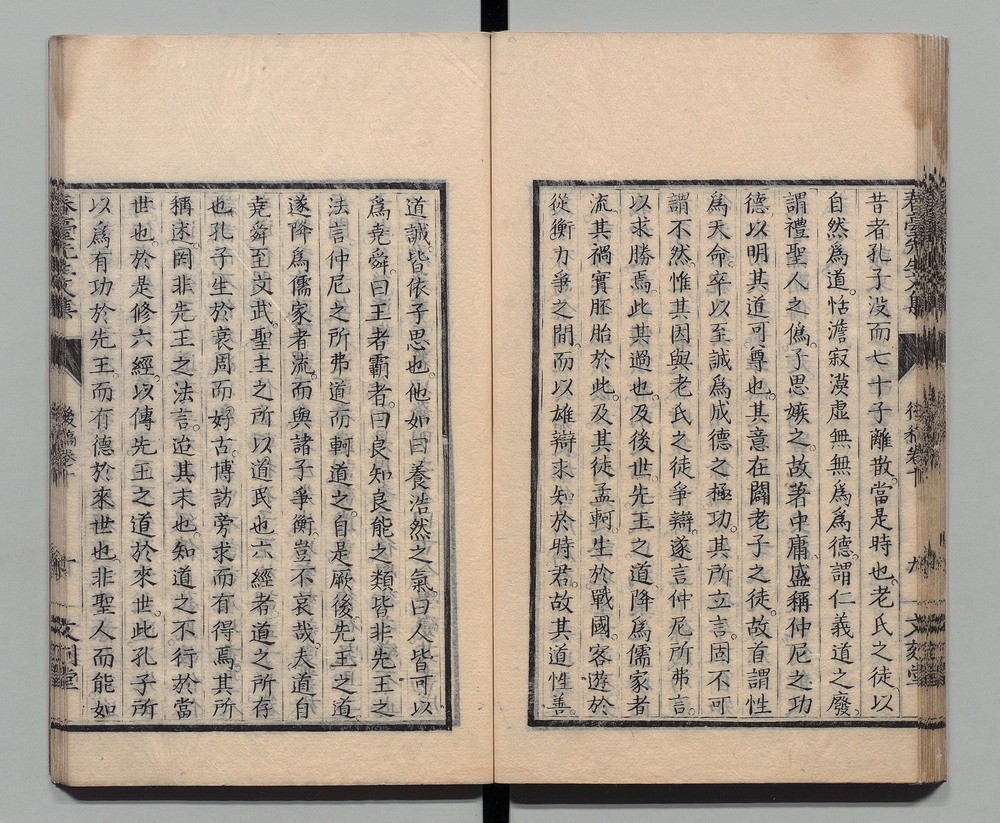 昔者孔子没而七十子離散。當是時也。老氏之徒以
自然爲道。恬澹寂漠虛無無爲爲德。謂仁義道之廢。
謂禮聖人之僞。子思嫉之。故著中庸。盛稱仲尼之功
德。以明其道可尊也。其意在闢老子之徒。故首謂性
爲天命。卒以至誠爲成德之極功。其所立言。固不可
謂不然。惟其因與老氏之徒爭辯。遂言仲尼所弗言。
以求勝焉。此其過也。及後世。先王之道降爲儒家者
流。其禍實胚胎於此。及其徒孟軻。生於戰國。客遊於
從衡力爭之間。而以雄辯求知於時君。故其道性善。
道誠。皆依子思也。他如曰養浩然之氣。曰人皆可以
爲堯舜。曰王者霸者。曰良知良能之類。皆非先王之
法言。仲尼之所弗道而軻道之。自是厥後。先王之道
遂降爲儒家者流。而與諸子爭衡。豈不哀哉。夫道自
堯舜至文武。聖主之所以道民也。六經者道之所存
也。孔子生於衰周而好古。博訪旁求而有得焉。其所
稱述。罔非先王之法言。迨其末也。知道之不行於當
世也。於是修六經。以傳先王之道於來世。此孔子所
以爲有功於先王。而有德於來世也。非聖人而能如
春臺先生文集
後稿卷十
九
文刻堂
春臺先生文集
後稿卷十
十
文刻堂